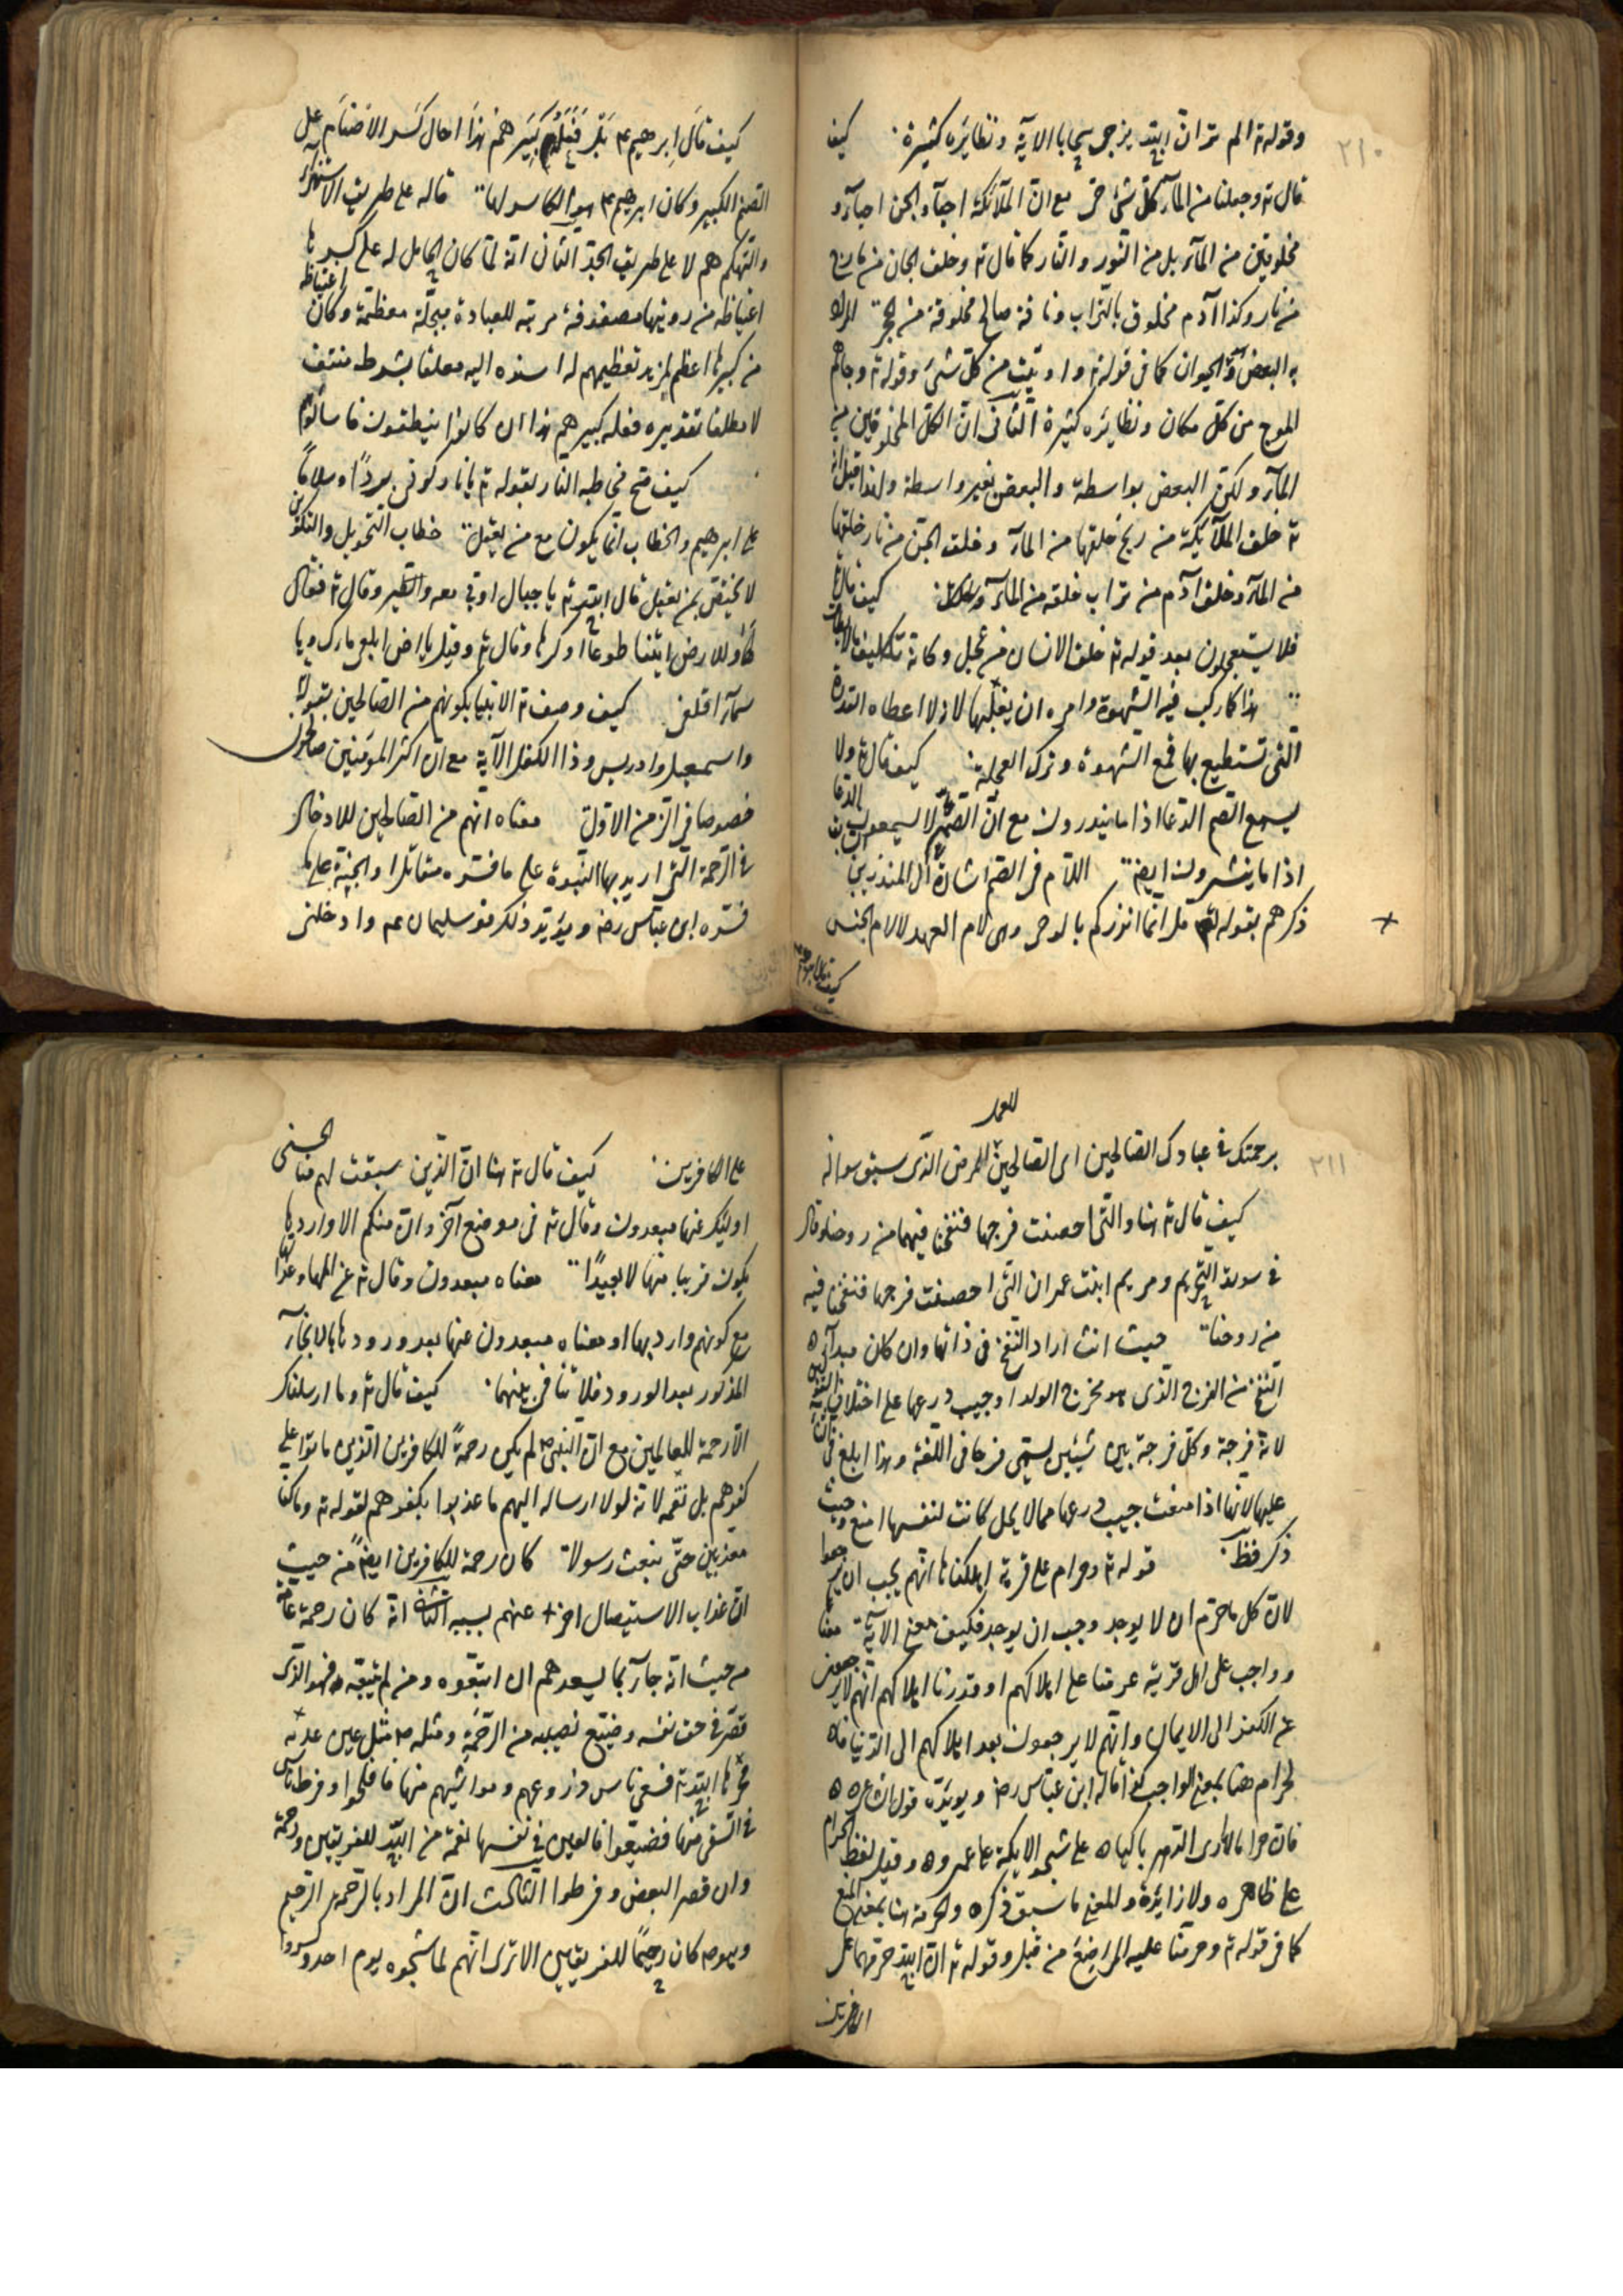 ٢١٠
وقوله تع الم تر ان الله يزجى سحابا الآية ونظايره كثيرة كيف
قال تع وجعلنا من المآء كل شئ حى مع ان الملآئكة احيآء والجن احيآء و
مخلوقين من المآء بل من النور والنار كما قال تع وخلق الجان من مارج
من نار وكذا آدم مخلوق بالتراب وناقة صالح مخلوقة من الحجر المراد
به البعض وهو الحيوان كما فى قوله تع واوتيت من كل شئ وقوله تع وجاءهم
الموج من كل مكان ونظايره كثيرة الثانى ان الكل المخلوقين من
المآء ولكن البعض بواسطة والبعض بغير واسطة ولهذا قيل انه
تع خلق الملآئكة من ريح خلقها من المآء وخلق الجن من نار خلقها
من المآء وخلق آدم من تراب خلقه من المآء كيف قال تع
فلا يستعجلون بعد قوله تع خلق الانسان من عجل وكانه تكليف ما لا يطاق
هذا كما ركب فيه الشهوة وامره ان يغلبها لانه لا اعطاه القدرة
التى تستطيع بها قمع الشهوة وترك العجلة كيف قال تع ولا
يسمع الصم الدعا اذا ما ينذرون مع ان الصم لا يسمعون الدعا
اذا ما يبشرون ايض اللام فى الصم اشارة الى المنذرين
ذكرهم بقوله تع قل انما انذركم بالوحى وهى لام العهد لا لام الجنس
كيف قال ابرهيم
كيف قال ابرهيم ع م بل فعله كبيرهم هذا احال كسر الاضنام على
الصنم الكبير وكان ابرهيم ع م هو الكاسر لها قاله على طريق الاستهزاء
والتهكم بهم لا على طريق الجد الثانى انه لما كان الحامل له على كسرها
اغتياظه من رويتها مصفوفة مرتبة للعبادة مبجلة معظمة وكان اغتياظه
من كبيرها اعظم لمزيد تعظيمهم له اسنده اليه معلقا بشرط منتف
لا مطلقا تقديره فعله كبيرهم هذا ان كانوا ينطقون فاسألوهم
كيف صح مخاطبه النار بقوله تع يا نار كونى بردًا وسلامًا
على ابرهيم والخطاب انما يكون مع من يعقل خطاب التحويل والتكوين
لا يختص بمن يعقل قال الله تع يا جبال اوبى معه والطير وقال تع فقال
لها وللارض ائتيا طوعا او كرها وقال تع وقيل يا ارض ابلعى مآءك ويا
سمآء اقلعى كيف وصف تع الانبيا بكونهم من الصالحين بقوله
واسمعيل وادريس وذا الكفل الآية مع ان اكثر المومنين صالحون
خصوصا فى الزمن الاول معناه انهم من الصالحين للادخال
فى الرحمة التى اريد بها النبوة على ما فسره مقاتل او الجنة على ما
فسره ابن عباس رض ويؤيد ذلك قول سليمان عم وادخلنى
للعمل
٢١١
برحمتك فى عبادك الصالحين اى الصالحين للمرض الذى سبق سواله
كيف قال تع هنا والتى احصنت فرجها فنفخنا فيها من روحنا وقال
فى سورة التحريم ومريم ابنت عمران التى احصنت فرجها فنفخنا فيه
من روحنا حيث انث اراد النفخ فى ذاتها وان كان مبدأ
النفخ من الفرج الذى هو مخرج الولد او جيب درعها على اختلاف
لانه فرجة وكل فرجة بين شيئين يسمى فرجا فى اللغة وهذا ابلغ فى
عليها لانها اذا منعت جيب درعها مما لا يحل كانت لنفسها امنع وحيث
ذكر فظ قوله تع وحرام على قرية اهلكناها انهم يجب ان يرجعوا
لان كل ما حرم ان لا يوجد وجب ان يوجد فكيف معنى الآية معنا
وواجب على اهل قرية عزمنا على اهلاكهم او قدرنا اهلاكهم انهم لا يرجعون
عن الكفر الى الايمان وانهم لا يرجعون بعد اهلاكهم الى الدنيا فان
لحرام هنا بمعنى الواجب كذا قاله ابن عباس رض ويويده قول الشاعر
فان حراما لا ارى الدهر باكيا على شجوه الا بكيت على عمرو وقيل لفظ الحرام
على ظاهره ولا زايدة والمعنى ما سبق ذكره والحرمة هنا بمعنى المنع
كما فى قوله تع وحرمنا عليه المراضع من قبل وقوله تع ان الله حرمهما على
الكافرين
على الكافرين كيف قال تع هنا ان الذين سبقت لهم منا الحسنى
اوليك عنها مبعدون وقال تع فى موضع آخر وان منكم الا واردها
يكون قريبا منها لا بعيدًا معناه مبعدون وقال تع عن المها وعذابها
مع كونهم وارديها او معناه مبعدون عنها بعد ورودها بالانجآء
المذكور بعد الورود فلا تنافى بينهما كيف قال تع وما ارسلناك
الا رحمة للعالمين مع ان النبى ص لم يكن رحمة للكافرين الذين ماتوا على
كفرهم بل نقمة لانه لولا ارساله اليهم ما عذبوا بكفرهم لقوله تع وما كنا
معذبين حتى نبعث رسولا كان رحمة للكافرين ايض من حيث
ان عذاب الاستيصال اخر عنهم بسببه الثانى انه كان رحمة عامة
من حيث انه جآء بما يسعدهم ان اتبعوه ومن لم يتبعه فهو الذى
قصر فى حق نفسه وضيع نصيبه من الرحمة ومثله ص مثل عين عذبه
فجرها الله تع فسقى ناس زروعهم ومواشيهم منها فافلحوا وفرط ناس
فى السقى منها فضيعوا فالعين فى نفسها نعمة من الله للفريقين ورحمة
وان قصر البعض وفرطوا الثالث ان المراد بالرحمة الرحيم
وهو ص كان رحيمًا للفريقين الا ترى انهم لما شجوه يوم احد وكسروا